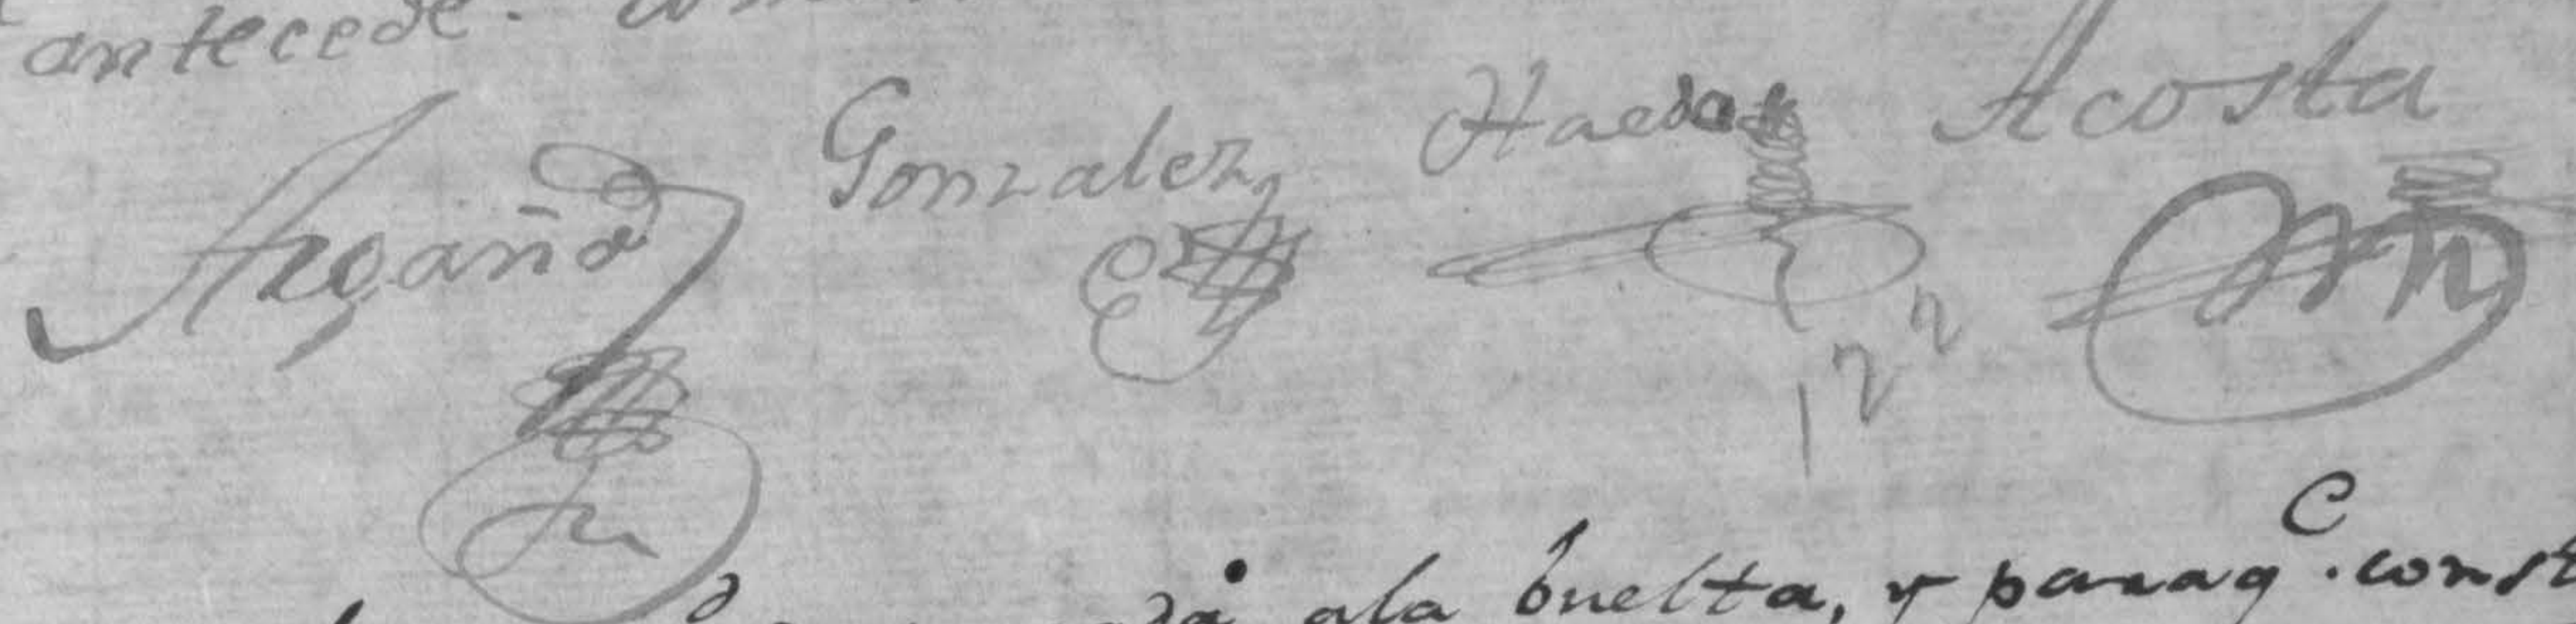 antecede.
Argaña Gonzalez Haedo Acosta
122
a la buelta, y paraq.e const